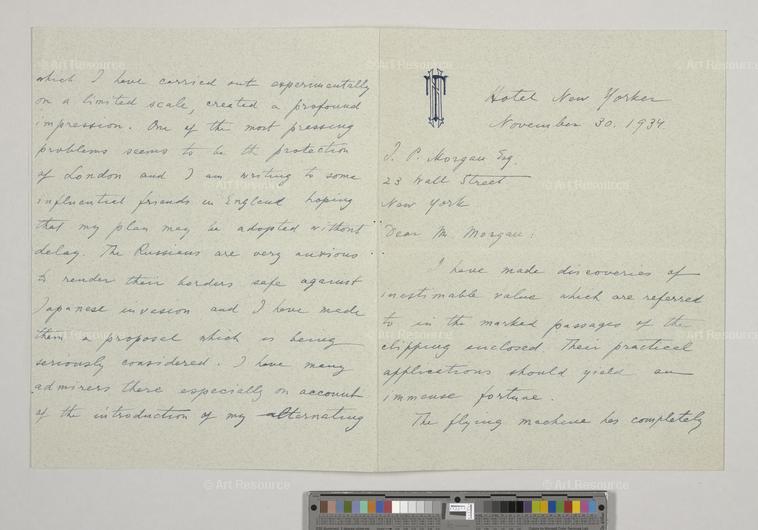 which I have carried out experimentally
on a limited scale, created a profound
impression. One of the most pressing
problems seems to be the protection
of London and I am writing to some
influential friends in England hoping
that my plan may be adopted without
delay. The Russians are very anxious
to render their borders safe against
Japanese invasion and I have made
them a proposal which is being
seriously considered. I have many
admirers there especially on account
of the introduction of my alternating
Hotel New Yorker
November 30. 1934
J. P. Morgan Esq.
23 Wall Street
New York
Dear Mr. Morgan:
I have made discoveries of
inestimable value which are referred
to in the marked passages of the
clipping enclosed. Their practical
applications should yield an
immense fortune.
The flying machine has completely
© Art Resource
© Art Resource
© Art Resource
© Art Resource
© Art Resource
© Art Resource
© Art Resource
© Art Resource
© Art Resource
© Art Resource